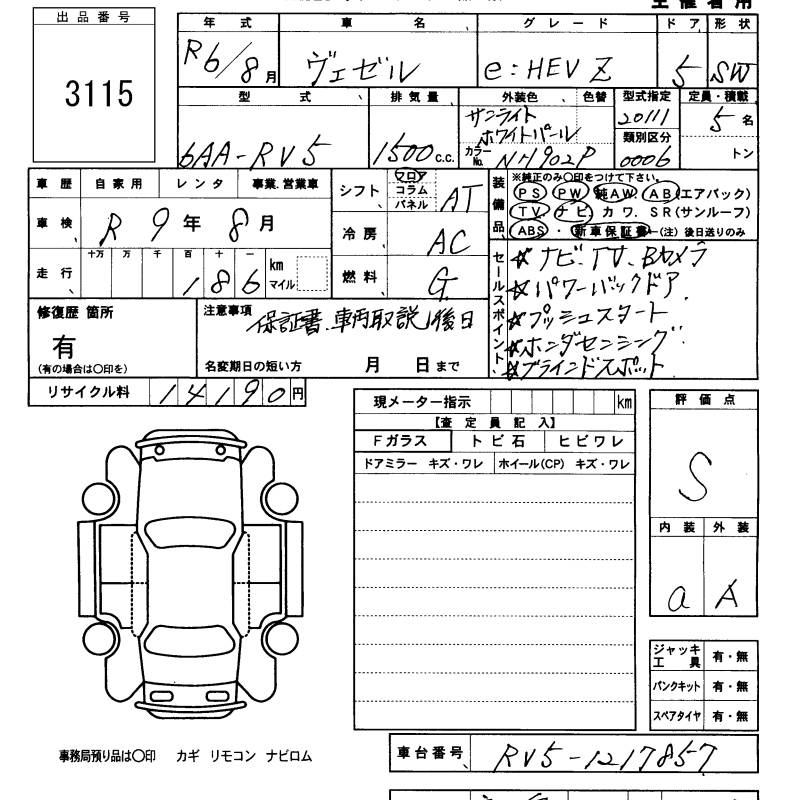 主催者用
出品番号
3115
年式 車名 グレード ドア 形状
R6/8月 ヴェゼル e:HEV Z 5 SW
型式 排気量 外装色 色替 型式指定 定員・積載
6AA-RV5 1500c.c. サンライトホワイトパール 20111 5名
カラーNo. NH902P 類別区分 0006 トン
車歴 自家用 レンタ 事業.営業車
車検 R9年8月
走行 十万 万 千 百 十 一
186 km マイル
シフト フロア コラム パネル AT
冷房 AC
燃料 G
装備品 ※純正のみ〇印をつけて下さい。
PS PW 純AW AB(エアバック)
TV ナビ カワ.SR(サンルーフ)
ABS・新車保証書―(注)後日送りのみ
セールスポイント
☆ナビ.TV.Bカメラ
☆パワーバックドア
☆プッシュスタート
☆ホンダセンシング
☆ブラインドスポット
修復歴 箇所
有
(有の場合は〇印を)
注意事項
保証書.車両取説後日
名変期日の短い方 月 日まで
リサイクル料 14190円
現メーター指示 km
【査定員記入】
Fガラス トビ石 ヒビワレ
ドアミラー キズ・ワレ ホイール(CP) キズ・ワレ
評価点
S
内装 外装
a A
ジャッキ工具 有・無
パンクキット 有・無
スペアタイヤ 有・無
事務局預り品は〇印 カギ リモコン ナビロム
車台番号 RV5-1217857